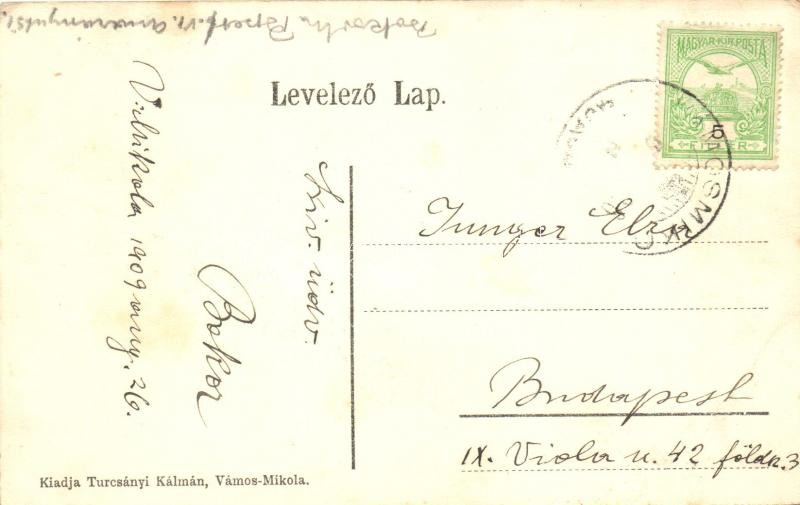 Bokor Budapest. VI.
Levelező Lap.
MAGYAR·KIR·POSTA
5
FILLÉR
VÁMOSMIKOLA
V.Mikola 1909 aug. 26.
Bokor
Sziv. üdv.
Junger Elza
Budapest
IX. Viola u. 42 földsz. 3
Kiadja Turcsányi Kálmán, Vámos-Mikola.